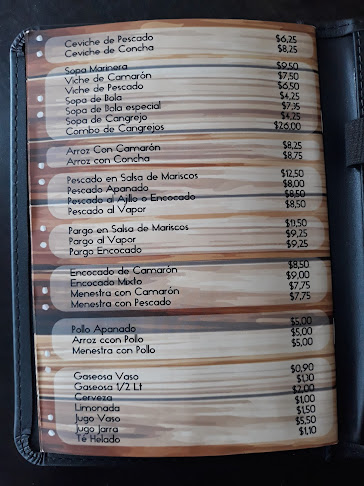 Ceviche de Pescado $6,25
Ceviche de Concha $8,25
Sopa Marinera $9,50
Viche de Camarón $7,50
Viche de Pescado $6,50
Sopa de Bola $4,25
Sopa de Bola especial
Sopa de Cangrejo $4,25
Combo de Cangrejos $26,00
Arroz Con Camarón $8,25
Arroz con Concha $8,75
Pescado en Salsa de Mariscos $12,50
Pescado Apanado $8,00
Pescado al Ajillo o Encocado $8,50
Pescado al Vapor $8,50
Pargo en Salsa de Mariscos $11,50
Pargo al Vapor $9,25
Pargo Encocado $9,25
Encocado de Camarón $8,50
Encocado Mixto $9,00
Menestra con Camarón $7,75
Menestra con Pescado $7,75
Pollo Apanado $5,00
Arroz ccon Pollo $5,00
Menestra con Pollo $5,00
Gaseosa Vaso $0,90
Gaseosa 1/2 Lt $1,10
Cerveza $2,00
Limonada $1,00
Jugo Vaso $1,50
Jugo Jarra $5,50
Té Helado $1,10